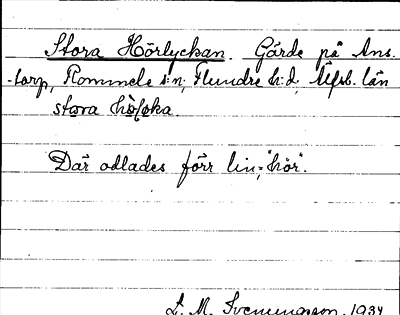 Stora Hörlyckan. Gärde på Ans-
torp, Rommele s:n, Flundre h:d, Älfsb. län
stora
Där odlades förr lin, "hör".
L. M. Svenungsson, 1934